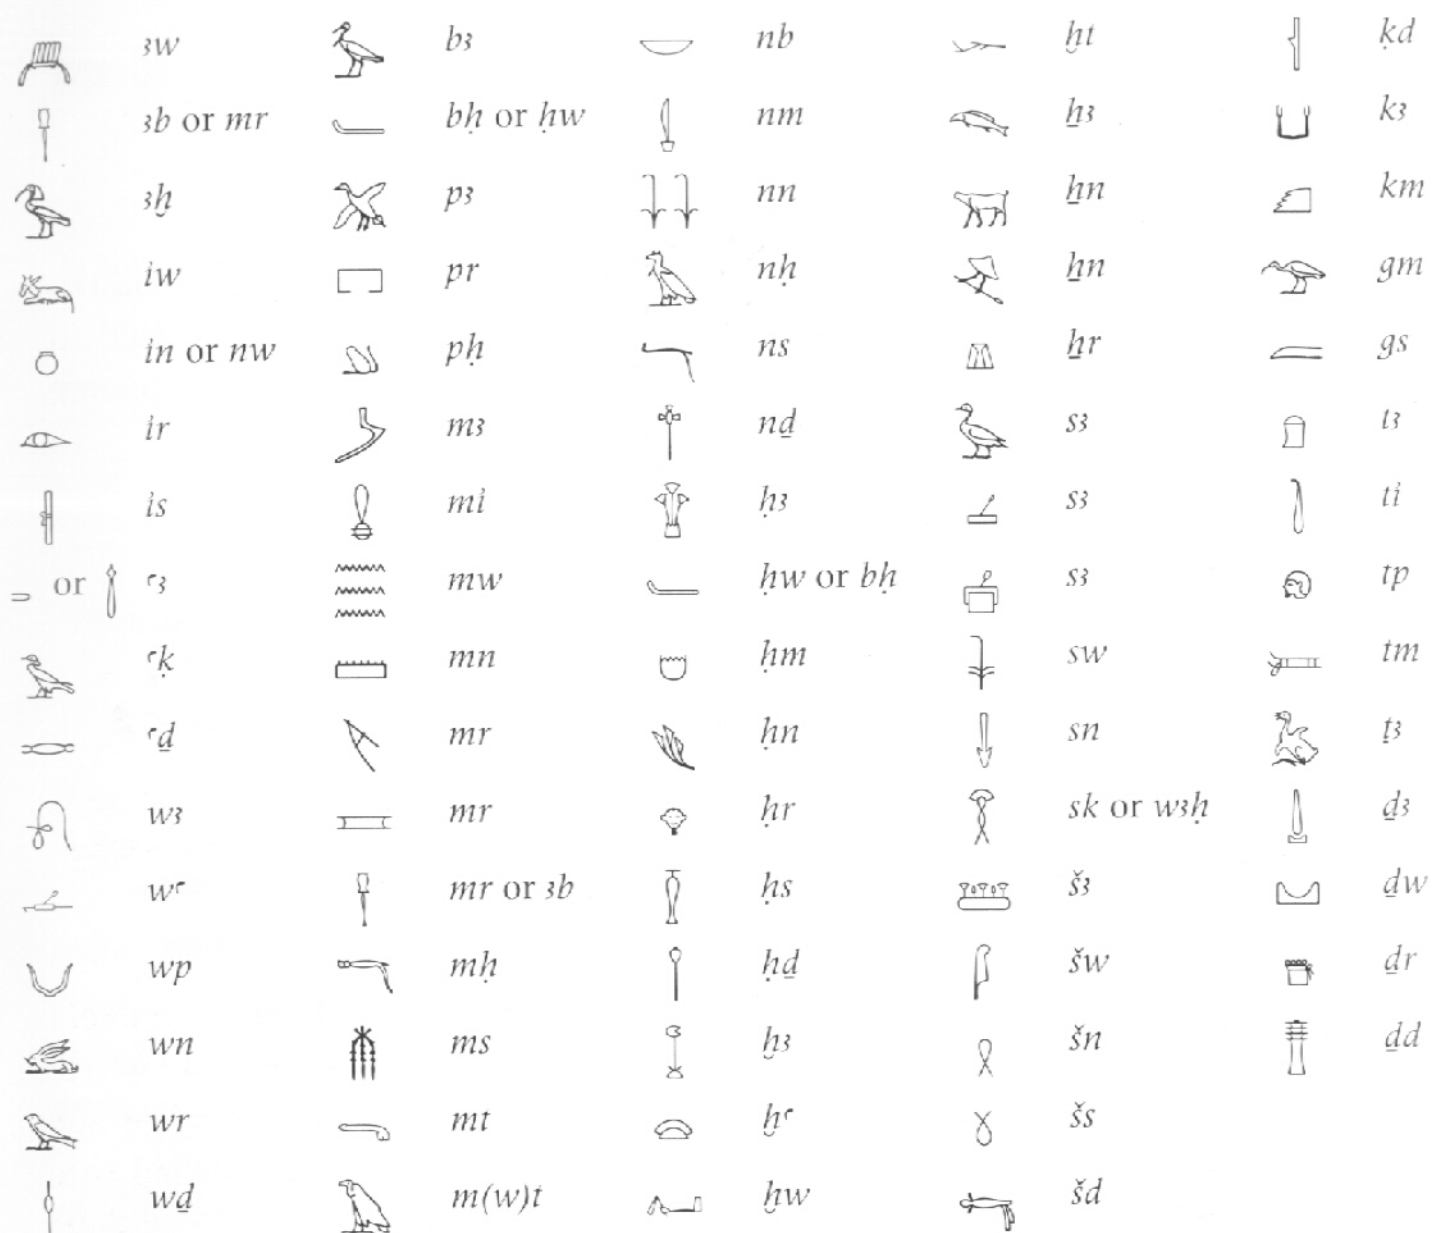 ꜣw
ꜣb or mr
ꜣḫ
ỉw
ỉn or nw
ỉr
ỉs
or ꜥꜣ
ꜥḳ
ꜥḏ
wꜣ
wꜥ
wp
wn
wr
wḏ
bꜣ
bḥ or ḥw
pꜣ
pr
pḥ
mꜣ
mỉ
mw
mn
mr
mr
mr or ꜣb
mḥ
ms
mt
m(w)t
nb
nm
nn
nḥ
ns
nḏ
ḥꜣ
ḥw or bḥ
ḥm
ḥn
ḥr
ḥs
ḥḏ
ḫꜣ
ḫꜥ
ḫw
ḫt
ẖꜣ
ẖn
ẖn
ẖr
sꜣ
sꜣ
sꜣ
sw
sn
sk or wꜣḥ
šꜣ
šw
šn
šs
šd
ḳd
kꜣ
km
gm
gs
tꜣ
tỉ
tp
tm
ṯꜣ
ḏꜣ
ḏw
ḏr
ḏd